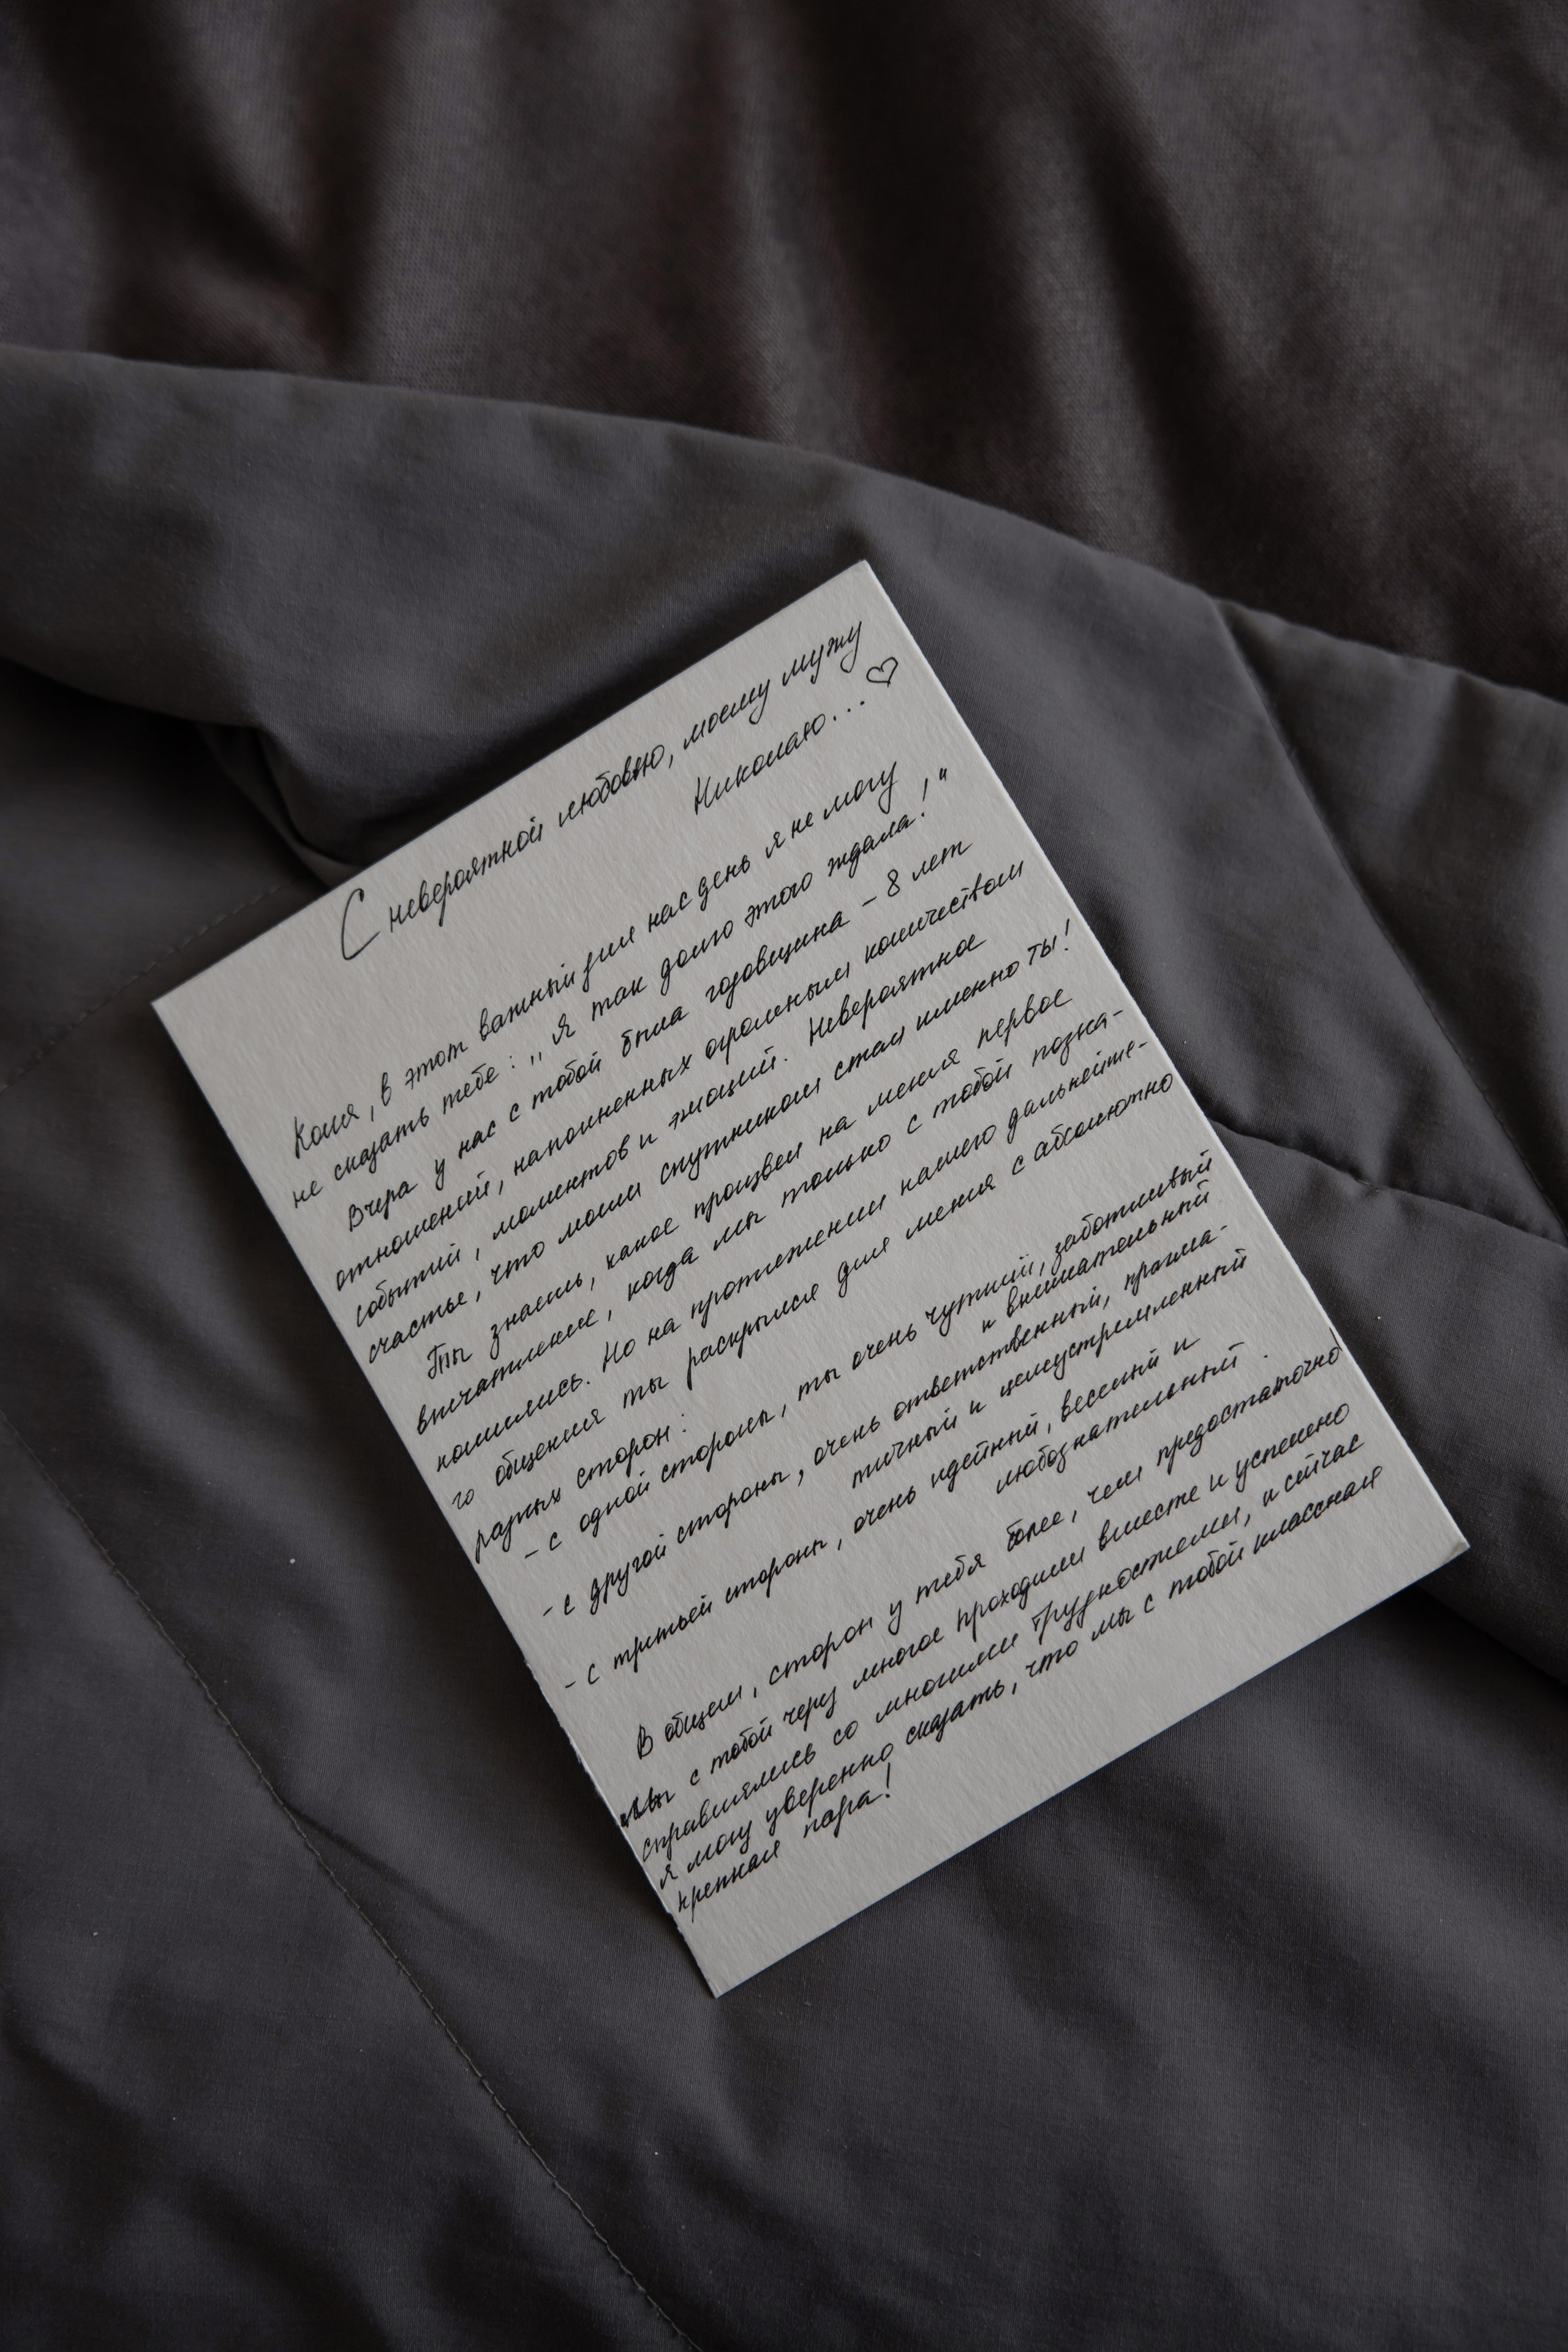 С невероятной любовью, моему мужу
Николаю... ♡
Коля, в этот важный для нас день я не могу
не сказать тебе: „Я так долго этого ждала!"
Вчера у нас с тобой была годовщина – 8 лет
отношений, наполненных огромным количеством
событий, моментов и эмоций. Невероятное
счастье, что моим спутником стал именно ты!
Ты знаешь, какое произвел на меня первое
впечатление, когда мы только с тобой позна-
комились. Но на протяжении нашего дальнейше-
го общения ты раскрылся для меня с абсолютно
разных сторон:
– с одной стороны, ты очень чуткий, заботливый
и внимательный
– с другой стороны, очень ответственный, прагма-
тичный и целеустремленный
– с третьей стороны, очень идейный, веселый и
любознательный.
В общем, сторон у тебя более, чем предостаточно!
Мы с тобой через многое проходили вместе и успешно
справлялись со многими трудностями, и сейчас
я могу уверенно сказать, что мы с тобой классная
крепкая пара!